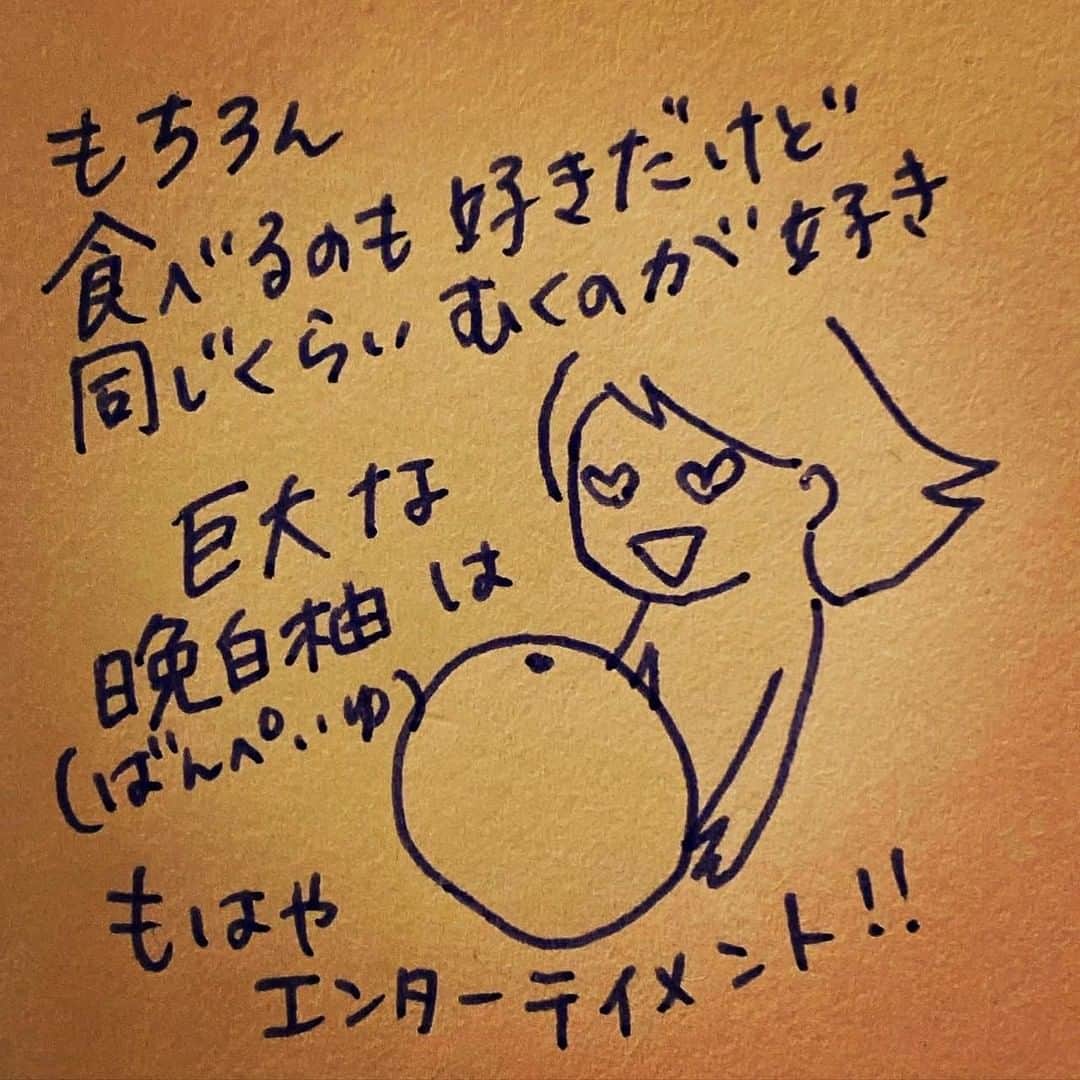 もちろん
食べるのも好きだけど
同じくらいむくのが好き
巨大な
晩白柚は
(ばんぺいゆ)
もはや
エンターテイメント!!